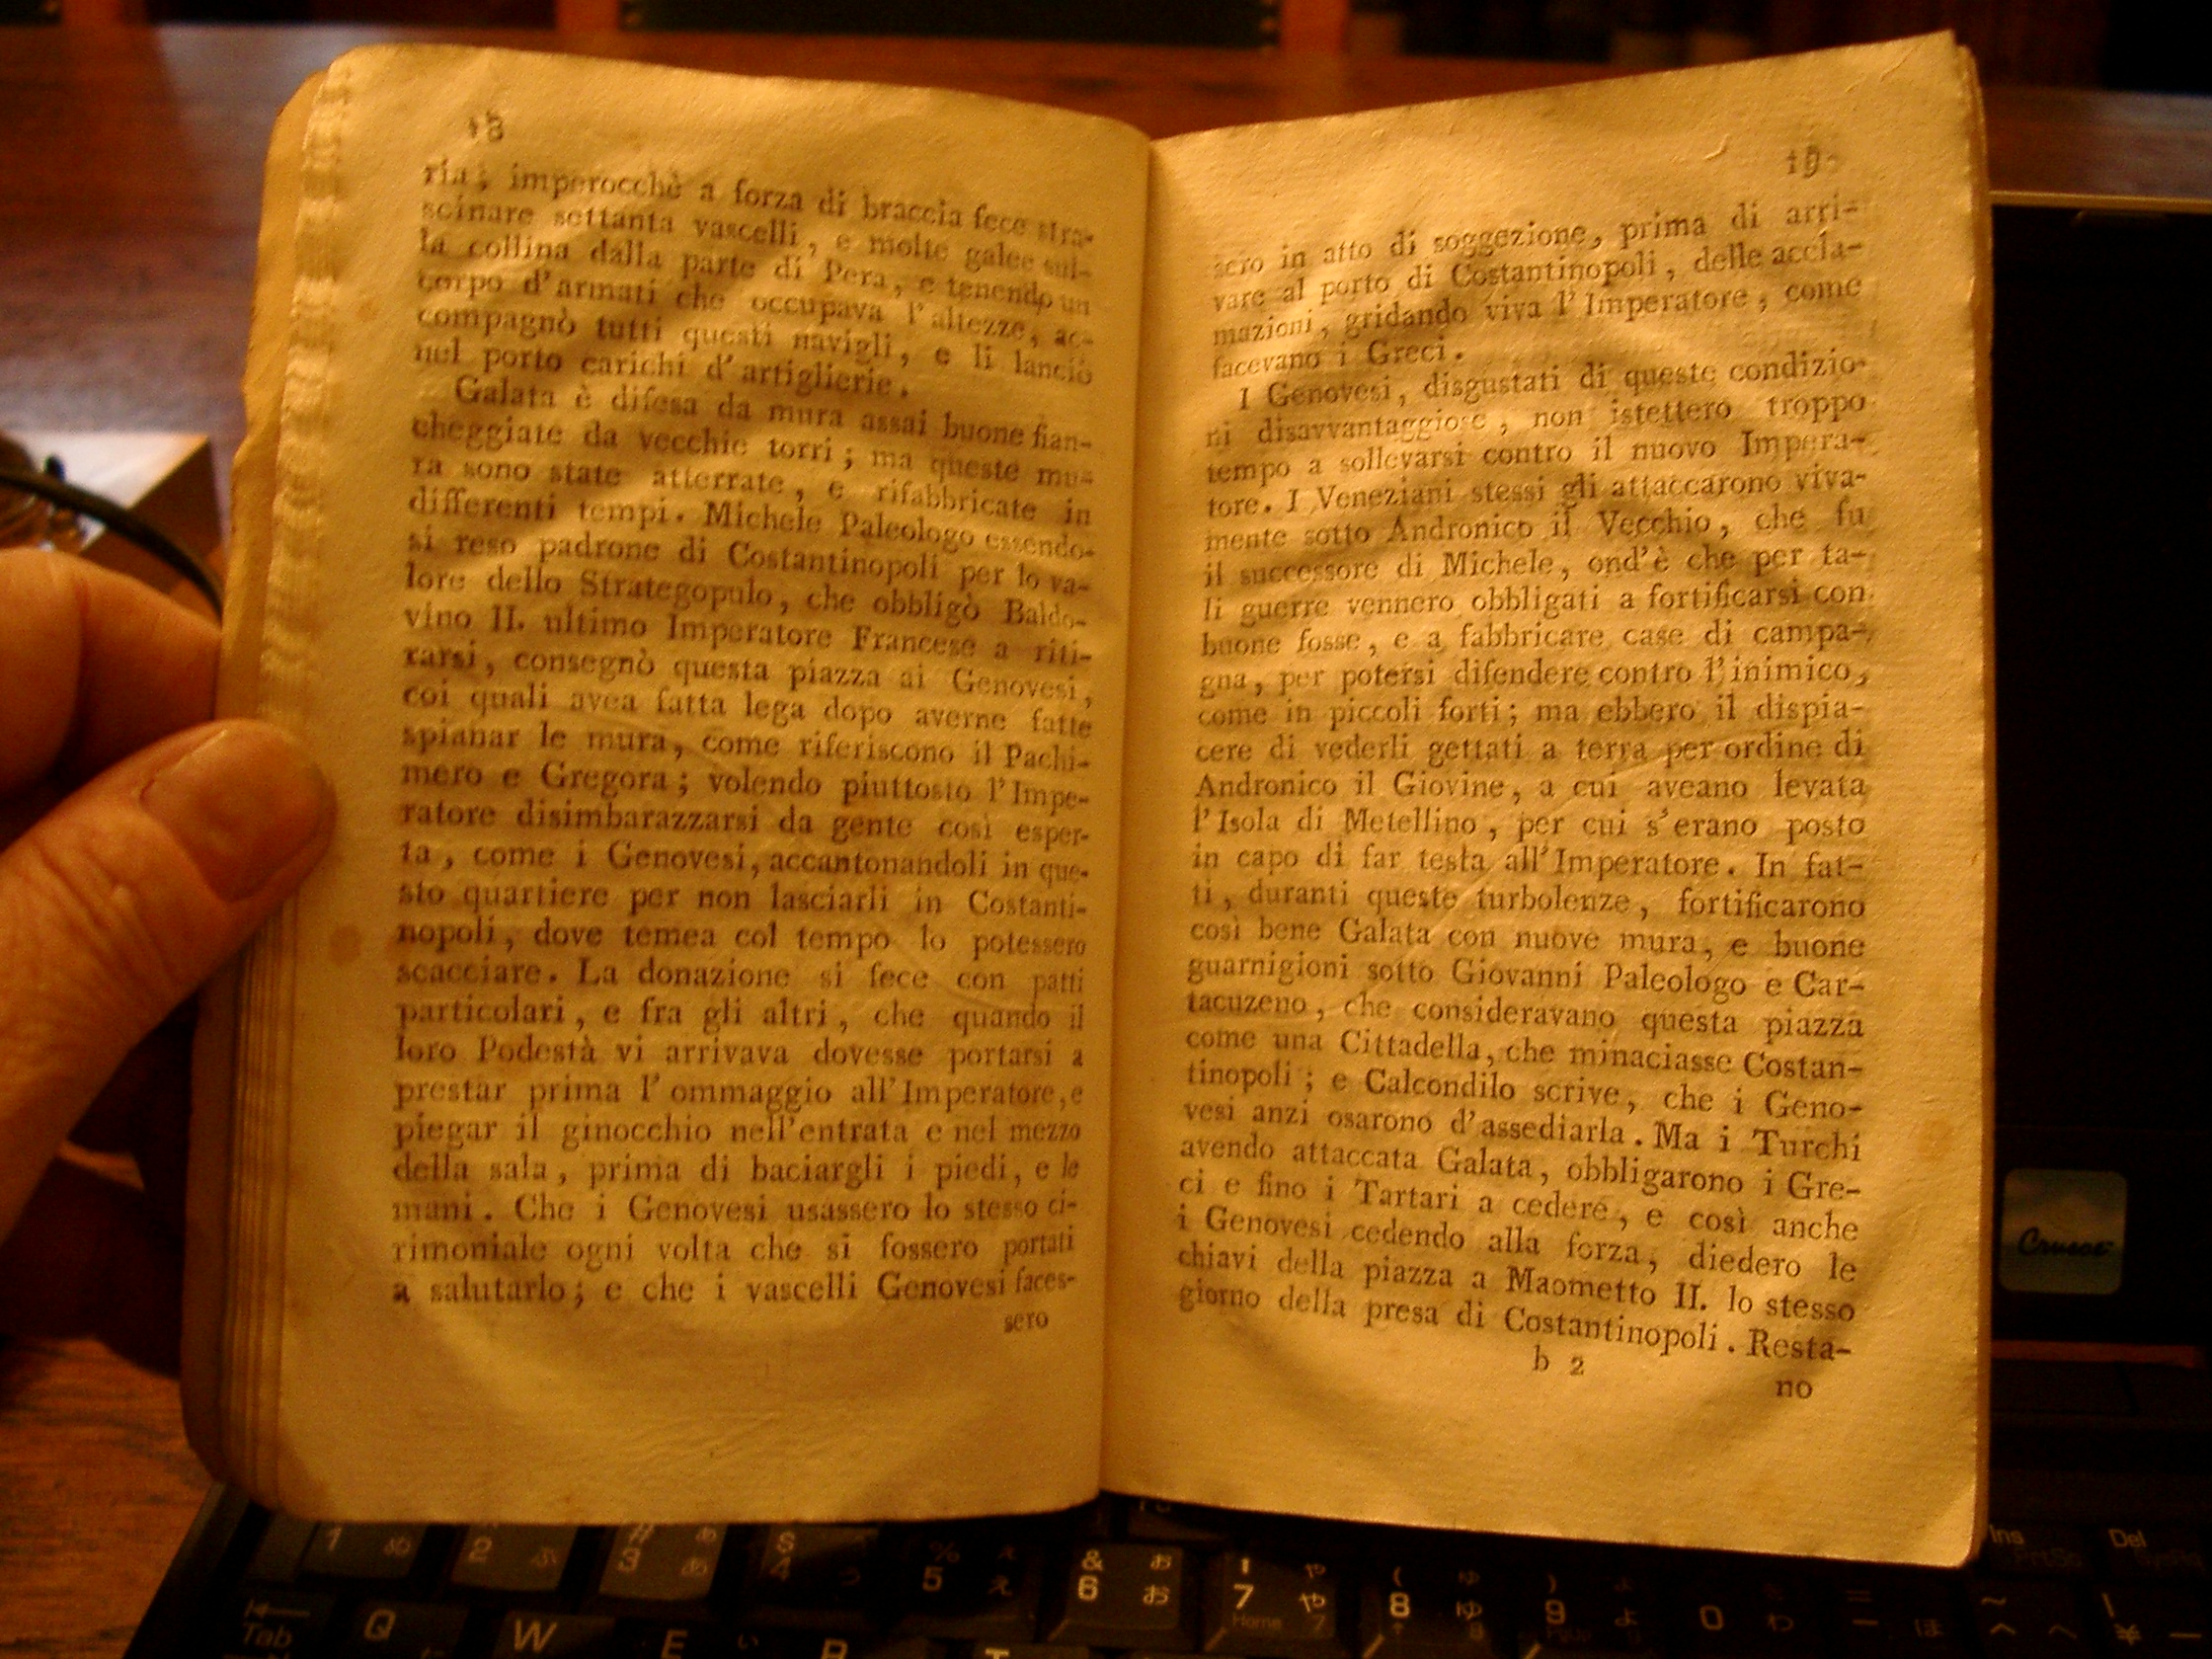 18
ria; imperocchè a forza di braccia fece stra-
scinare settanta vascelli, e molte galee sul-
la collina dalla parte di Pera, e tenendo un
corpo d'armati che occupava l'altezze, ac-
compagnò tutti questi navigli, e li lanciò
nel porto carichi d'artiglierie.
Galata è difesa da mura assai buone fian-
cheggiate da vecchie torri; ma queste mu-
ra sono state atterrate, e rifabbricate in
differenti tempi. Michele Paleologo essendo-
si reso padrone di Costantinopoli per lo va-
lore dello Strategopulo, che obbligò Baldo-
vino II. ultimo Imperatore Francese a riti-
rarsi, consegnò questa piazza ai Genovesi,
coi quali avea fatta lega dopo averne fatte
spianar le mura, come riferiscono il Pachi-
mero e Gregora; volendo piuttosto l'Impe-
ratore disimbarazzarsi da gente così esper-
ta, come i Genovesi, accantonandoli in que-
sto quartiere per non lasciarli in Costanti-
nopoli, dove temea col tempo lo potessero
scacciare. La donazione si fece con patti
particolari, e fra gli altri, che quando il
loro Podestà vi arrivava dovesse portarsi a
prestar prima l'ommaggio all'Imperatore, e
piegar il ginocchio nell'entrata e nel mezzo
della sala, prima di baciargli i piedi, e le
mani. Che i Genovesi usassero lo stesso ci-
rimoniale ogni volta che si fossero portati
a salutarlo; e che i vascelli Genovesi faces-
sero
19
sero in atto di soggezione, prima di arri-
vare al porto di Costantinopoli, delle accla-
mazioni, gridando viva l'Imperatore, come
facevano i Greci.
I Genovesi, disgustati di queste condizio-
ni disavvantaggiose, non istettero troppo
tempo a sollevarsi contro il nuovo Impera-
tore. I Veneziani stessi gli attaccarono viva-
mente sotto Andronico il Vecchio, che fu
il successore di Michele, ond'è che per ta-
li guerre vennero obbligati a fortificarsi con
buone fosse, e a fabbricare case di campa-
gna, per potersi difendere contro l'inimico,
come in piccoli forti; ma ebbero il dispia-
cere di vederli gettati a terra per ordine di
Andronico il Giovine, a cui aveano levata
l'Isola di Metellino, per cui s'erano posto
in capo di far testa all'Imperatore. In fat-
ti, duranti queste turbolenze, fortificarono
così bene Galata con nuove mura, e buone
guarnigioni sotto Giovanni Paleologo e Car-
tacuzeno, che consideravano questa piazza
come una Cittadella, che minaciasse Costan-
tinopoli; e Calcondilo scrive, che i Geno-
vesi anzi osarono d'assediarla. Ma i Turchi
avendo attaccata Galata, obbligarono i Gre-
ci e fino i Tartari a cedere, e così anche
i Genovesi cedendo alla forza, diedero le
chiavi della piazza a Maometto II. lo stesso
giorno della presa di Costantinopoli. Resta-
b 2
no
Crusoe
Ins
Del
PrtSc
SysRq
1 ぬ
2 ふ
# 3 ぁ あ
$ 4 う
% 5 ぇ え
& 6 ぉ お
7 ゃ や Home 7
( 8 ゅ ゆ 8
) 9 ょ よ PgUp
0 わ
ー ほ
~ ^ へ
| ¥ ー
Tab
Q
W
E い
R
T